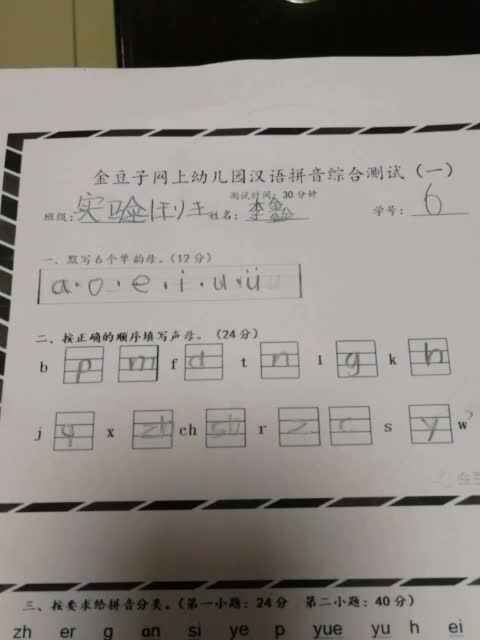 金豆子网上幼儿园汉语拼音综合测试（一）
测试时间：30分钟
班级：实验 姓名：李鑫 学号：6
一、默写6个单韵母。（12分）
a·o·e·i·u·ü
二、按正确的顺序填写声母。（24分）
b p m f d t n l g k h
j q x zh ch sh r z c s y w
三、按要求给拼音分类。（第一小题：24分 第二小题：40分）
zh er g an si ye p yue yu h ei